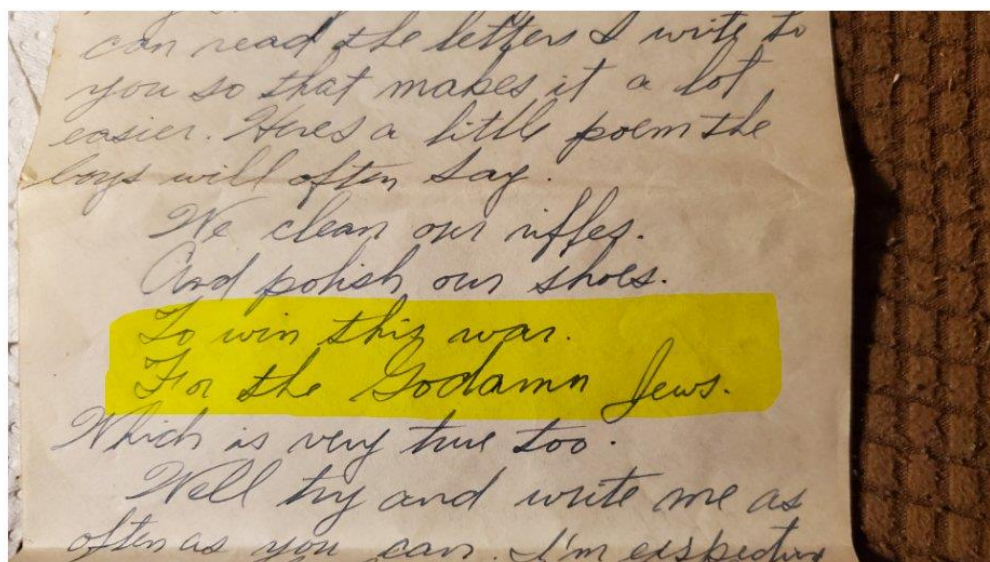 can read the letters I write to
you so that makes it a lot
easier. Heres a little poem the
boys will often say.
We clean our riffles.
And polish our shoes.
To win this war.
For the Godamn Jews.
Which is very true too.
Well try and write me as
often as you can. I'm exspecting